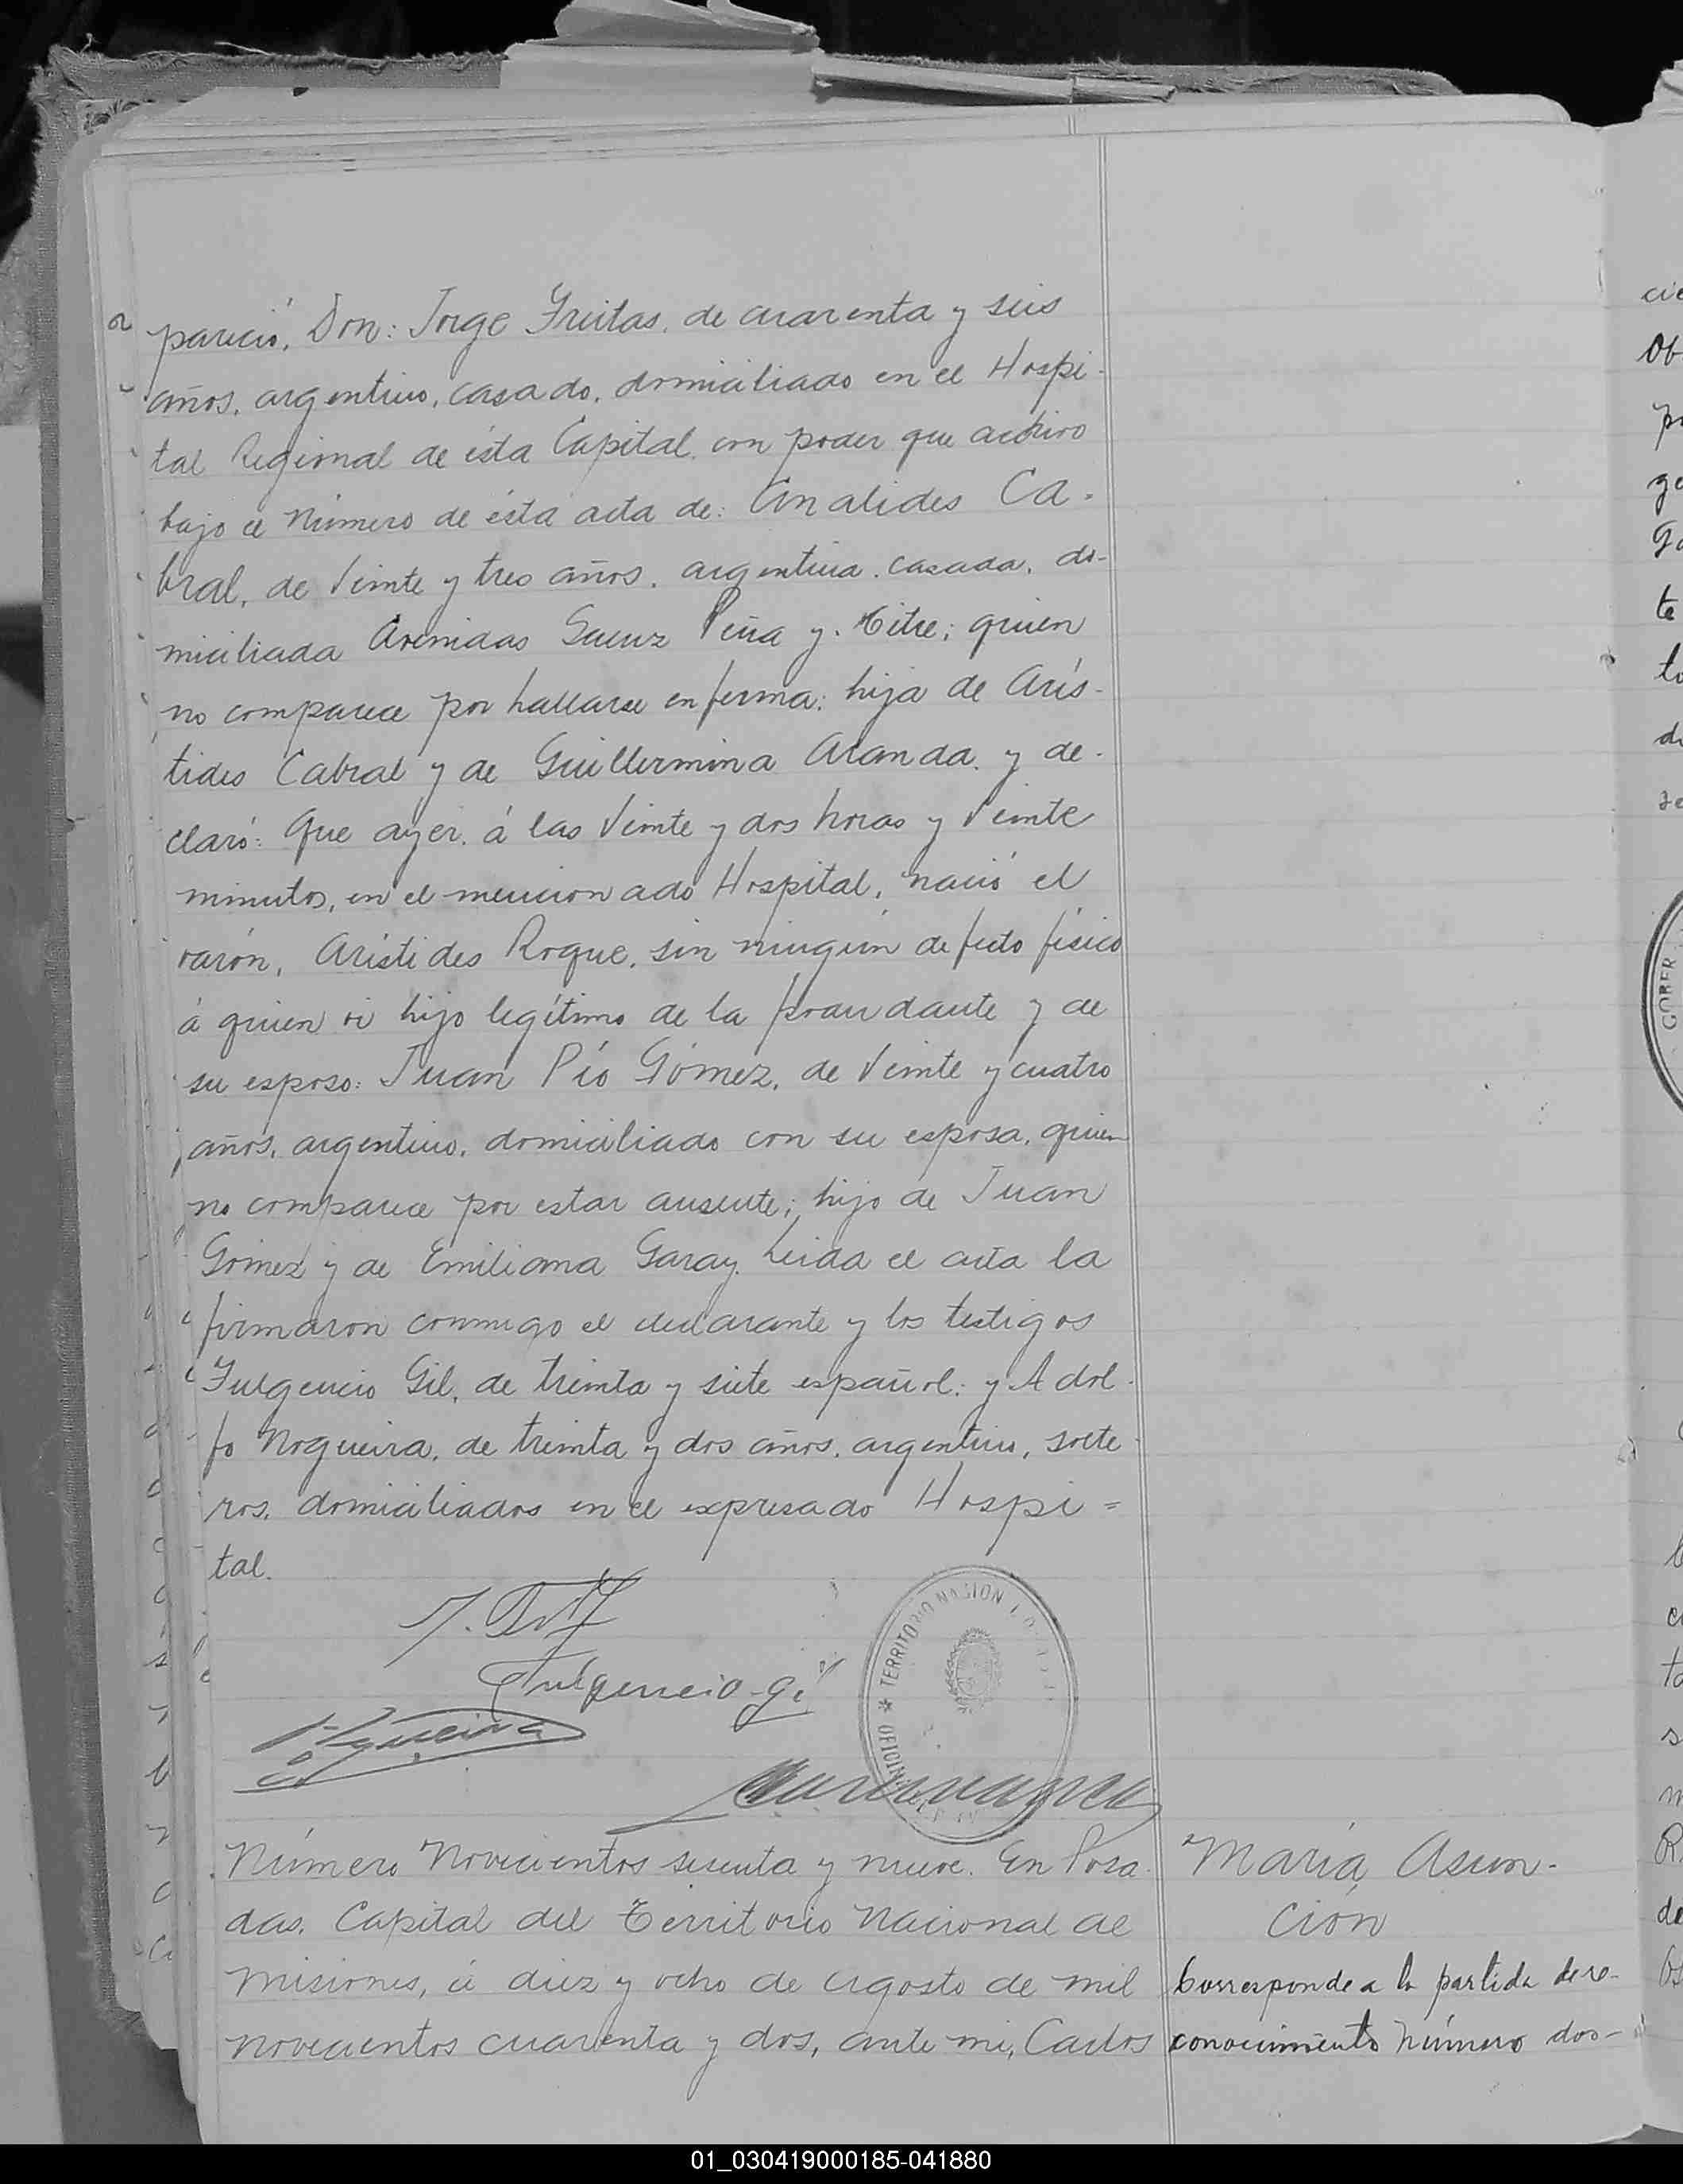 pareció, Don: Jorge Freitas, de cuarenta y seis
años, argentino, casado, domiciliado en el Hospi-
tal Regional de ésta Capital, con poder que archivo
bajo el número de ésta acta de: Analides Ca-
bral, de veinte y tres años, argentina, casada, do-
miciliada Avenidas Saenz Peña y Mitre; quien
no comparece por hallarse enferma; hija de Arís-
tides Cabral y de Guillermina Aranda, y de-
claró: Que ayer, á las veinte y dos horas y veinte
minutos, en el mencionado Hospital, nació el
varón, Arístides Roque, sin ningún defecto físico
á quien vi hijo legítimo de la poderdante y de
su esposo: Juan Pío Gómez, de veinte y cuatro
años, argentino, domiciliado con su esposa, quien
no comparece por estar ausente; hijo de Juan
Gómez y de Emiliana Garay. Leida el acta la
firmaron conmigo el declarante y los testigos
Fulgencio Gil, de treinta y siete español; y Adol-
fo Nogueira, de treinta y dos años, argentino, solte-
ros, domiciliados en el expresado Hospi=
tal.
Fulgencio Gil
TERRITORIO NACION
Número novecientos sesenta y nueve. En Posa-
das, Capital del Territorio Nacional de
Misiones, á diez y ocho de agosto de mil
novecientos cuarenta y dos, ante mi, Carlos
María Asun-
ción
Corresponde a la partida de re-
conocimiento número dos-
01_030419000185-041880